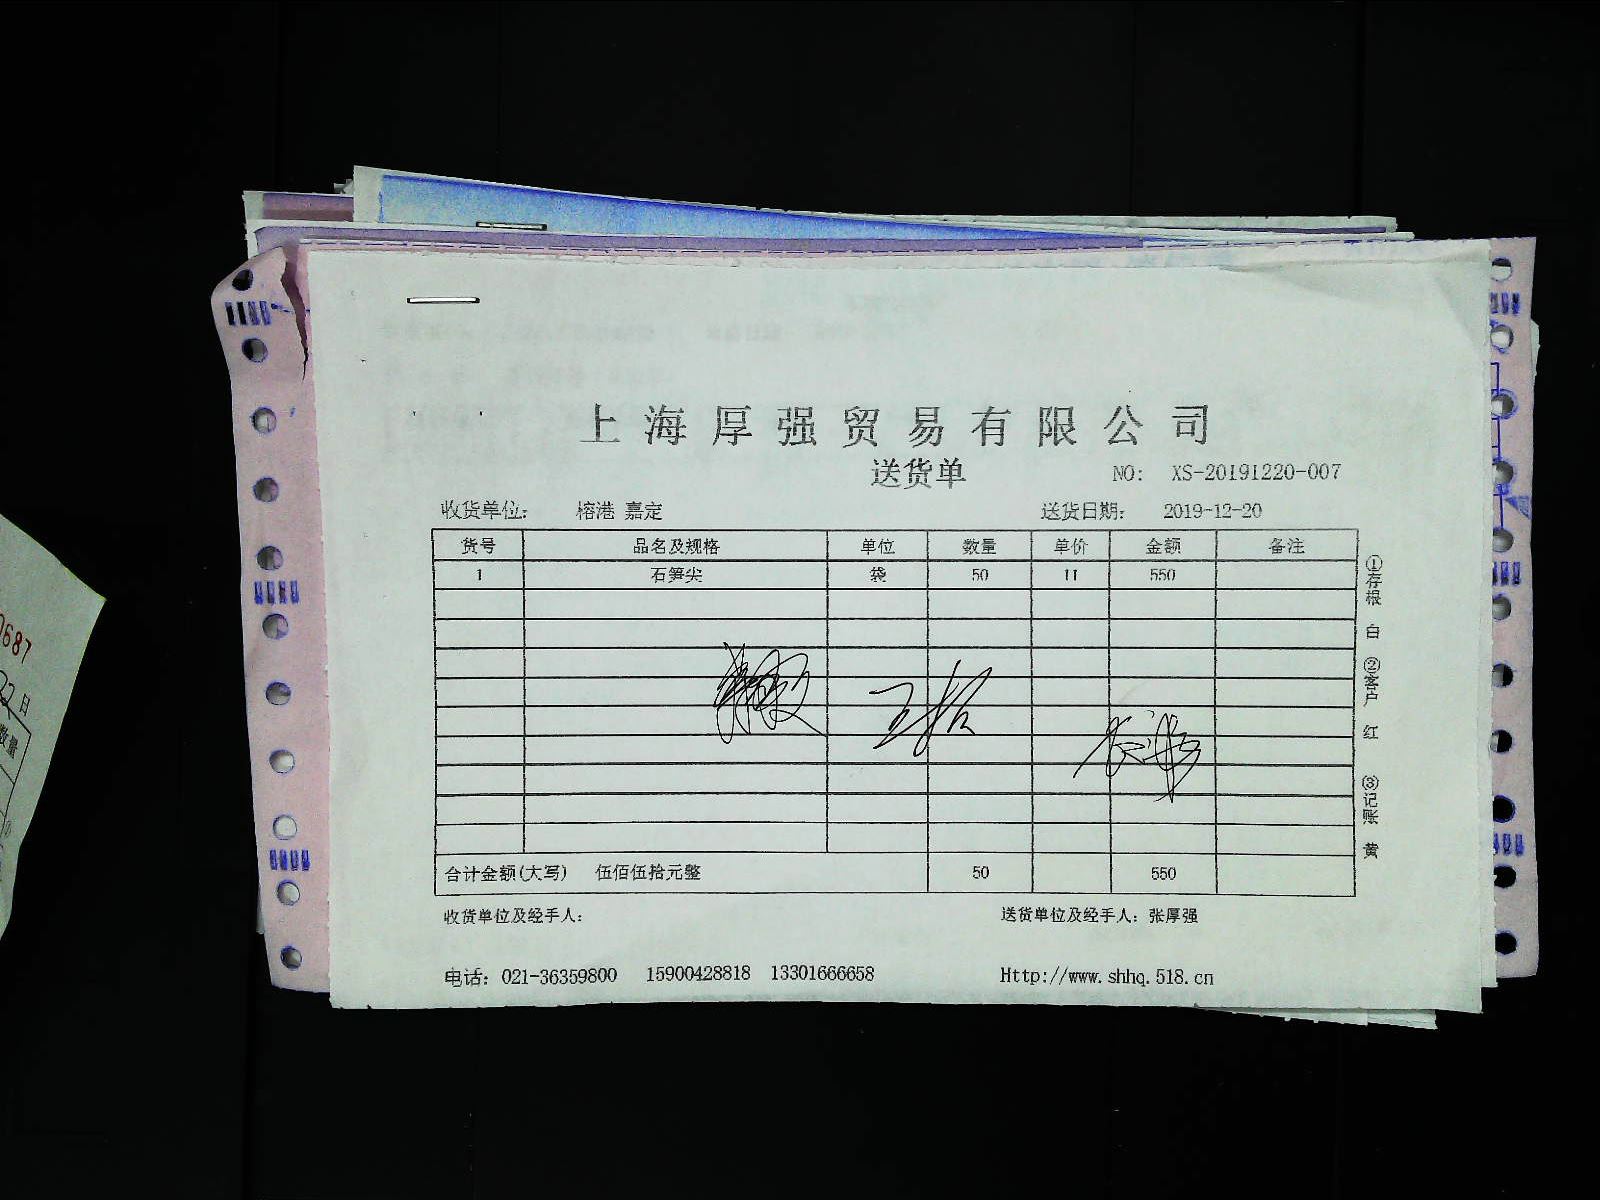 上海厚强贸易有限公司
送货单 NO: XS-20191220-007
收货单位: 榕港 嘉定 送货日期: 2019-12-20
货号 品名及规格 单位 数量 单价 金额 备注
1 石笋尖 袋 50 11 550
合计金额(大写) 伍佰伍拾元整 50 550
收货单位及经手人: 送货单位及经手人: 张厚强
电话: 021-36359800 15900428818 13301666658 Http://www.shhq.518.cn
①存根 白 ②客户 红 ③记账 黄
687
日
数量